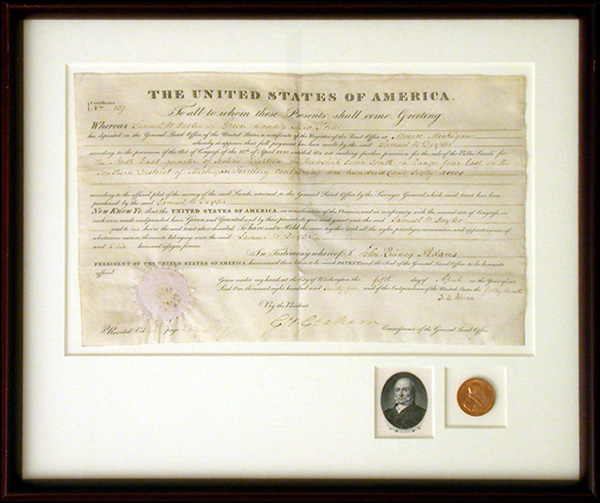 THE UNITED STATES OF AMERICA.
Certificate
No. 137
To all to whom these Presents shall come, Greeting
Whereas Samuel W. Dexter of County New York
has deposited in the General Land Office of the United States, a certificate of the Register of the Land Office at Monroe Michigan
whereby it appears that full payment has been made by the said Samuel W Dexter
according to the provisions of the Act of Congress of the 24th of April 1820, entitled An act making further provision for the sale of the Public Lands, for
the East quarter of Section in Township South in Range four East in the
Southern District of Michigan Territory containing one hundred and Sixty acres
according to the official plat of the survey of the said Lands returned to the General Land Office by the Surveyor General, which said tract has been
purchased by the said Samuel W Dexter
NOW KNOW YE, that the UNITED STATES OF AMERICA, in consideration of the Premises, and in conformity with the several acts of Congress, in
such case made and provided, have Given and Granted, and by these presents do give and grant, unto the said Samuel W. Dexter
and to his heirs, the said tract above described: To have and to Hold the same, together with all the rights, privileges, immunities, and appurtenances of
whatsoever nature, thereunto belonging, unto the said Samuel W. Dexter
and to his heirs and assigns forever.
In Testimony whereof, I John Quincy Adams
PRESIDENT OF THE UNITED STATES OF AMERICA, have caused these Letters to be made PATENT, and the Seal of the General Land Office to be hereunto
affixed.
Given under my hand, at the City of Washington, the fifth day of April in the Year of our
Lord One thousand eight hundred and twenty five and of the Independence of the United States the forty ninth
By the President J. Q. Adams
Geo Graham Commissioner of the General Land Office.
Recorded Vol page